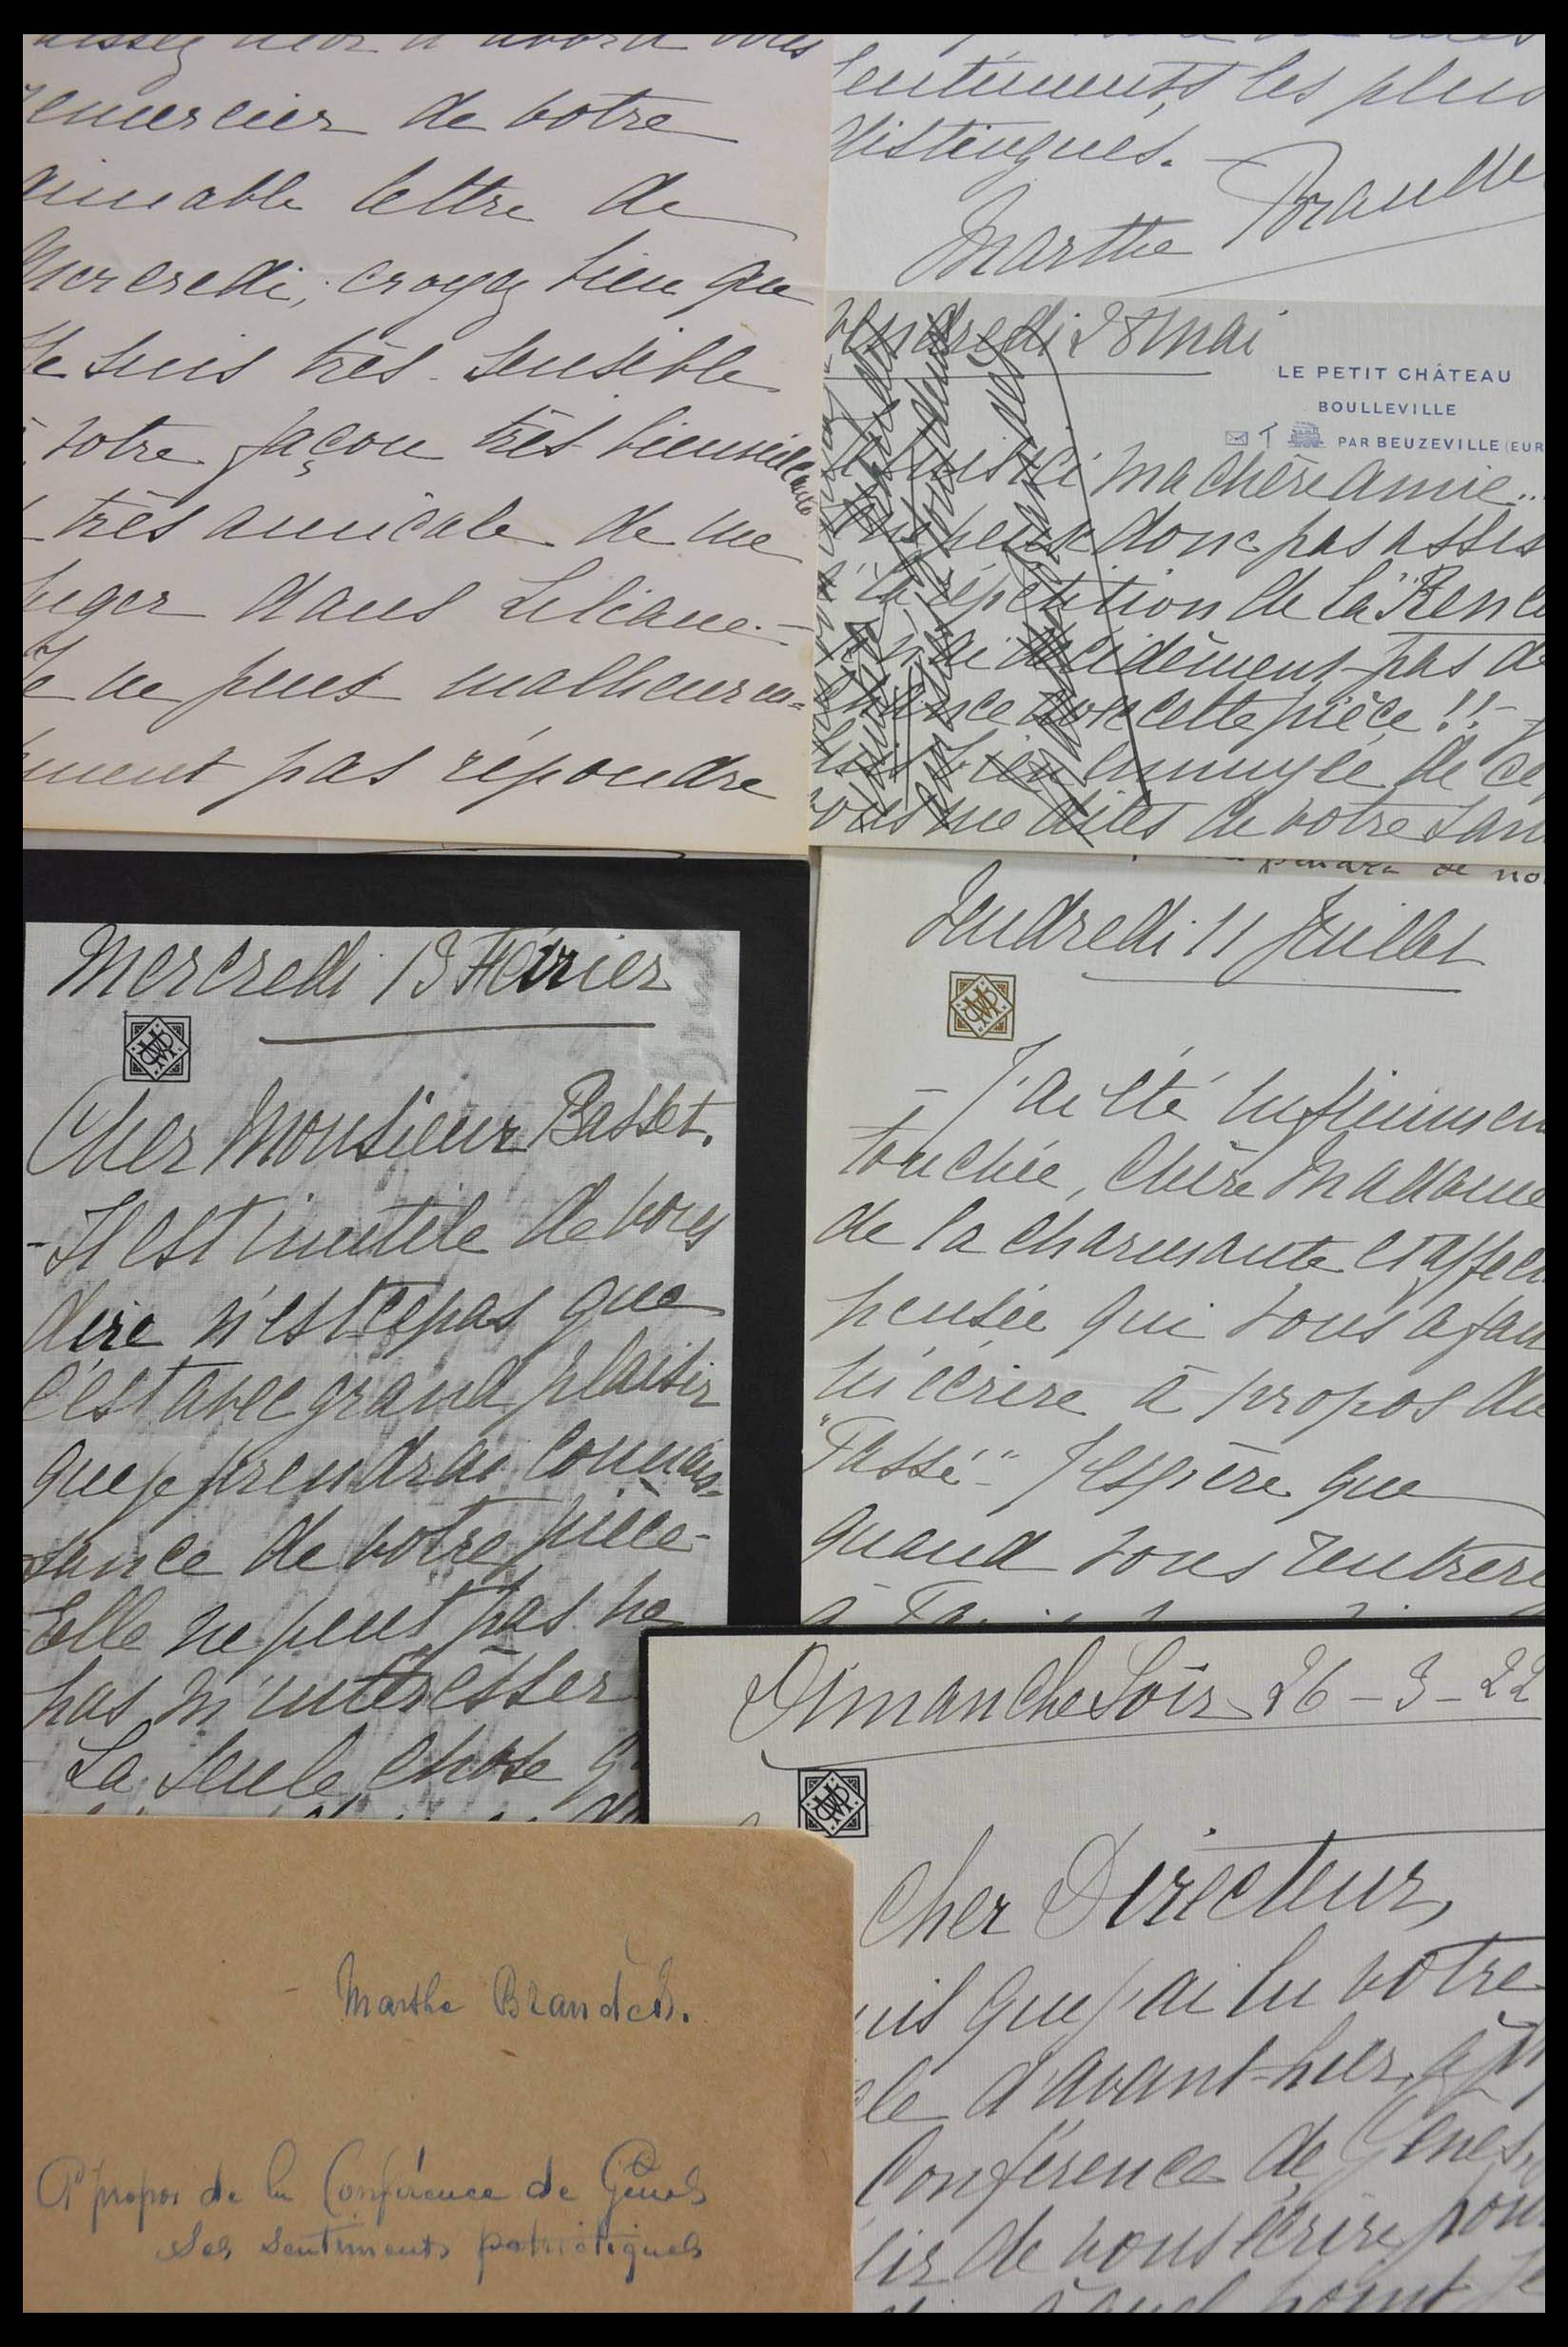 remercier de votre
aimable lettre de
Mercredi, croyez bien que
Je suis très sensible
à votre façon très bienveillante
très amicale de me
juger dans Liliane.-
Je ne peux malheureu=
sement pas répondre
sentiments les plus
distingués.-
Marthe Brandès
Vendredi 28 Mai
LE PETIT CHÂTEAU
BOULLEVILLE
PAR BEUZEVILLE (EUR
suis ici ma chère amie...
ne peux donc pas assis
à la répétition de la "Renco
n'ai décidément pas de
chance avec cette pièce !!-
suis bien ennuyée de ce
vous me dites de votre san
Mercredi 13 Février
Cher Monsieur Basset.
- Il est inutile de vous
dire n'est ce pas que
c'est avec grand plaisir
que je prendrai connais=
sance de votre pièce-
Elle ne peut pas ne
pas m'intéresser
- La seule chose q
Vendredi 11 Juillet
- J'ai été infinimen
touchée, chère Madame
de la charmante et affec
pensée qui vous a fait
m'écrire à propos du
"Passé"- J'espère que
quand vous rentrere
Dimanche Soir 26-3-22
Cher Directeur,
uis que j'ai lu votre
cle d'avant-hier,
Conférence de Gênes,
sir de vous écrire pour
à quel point je
- Marthe Brandès.
A propos de la Conférence de Gênes
Ses sentiments patriotiques